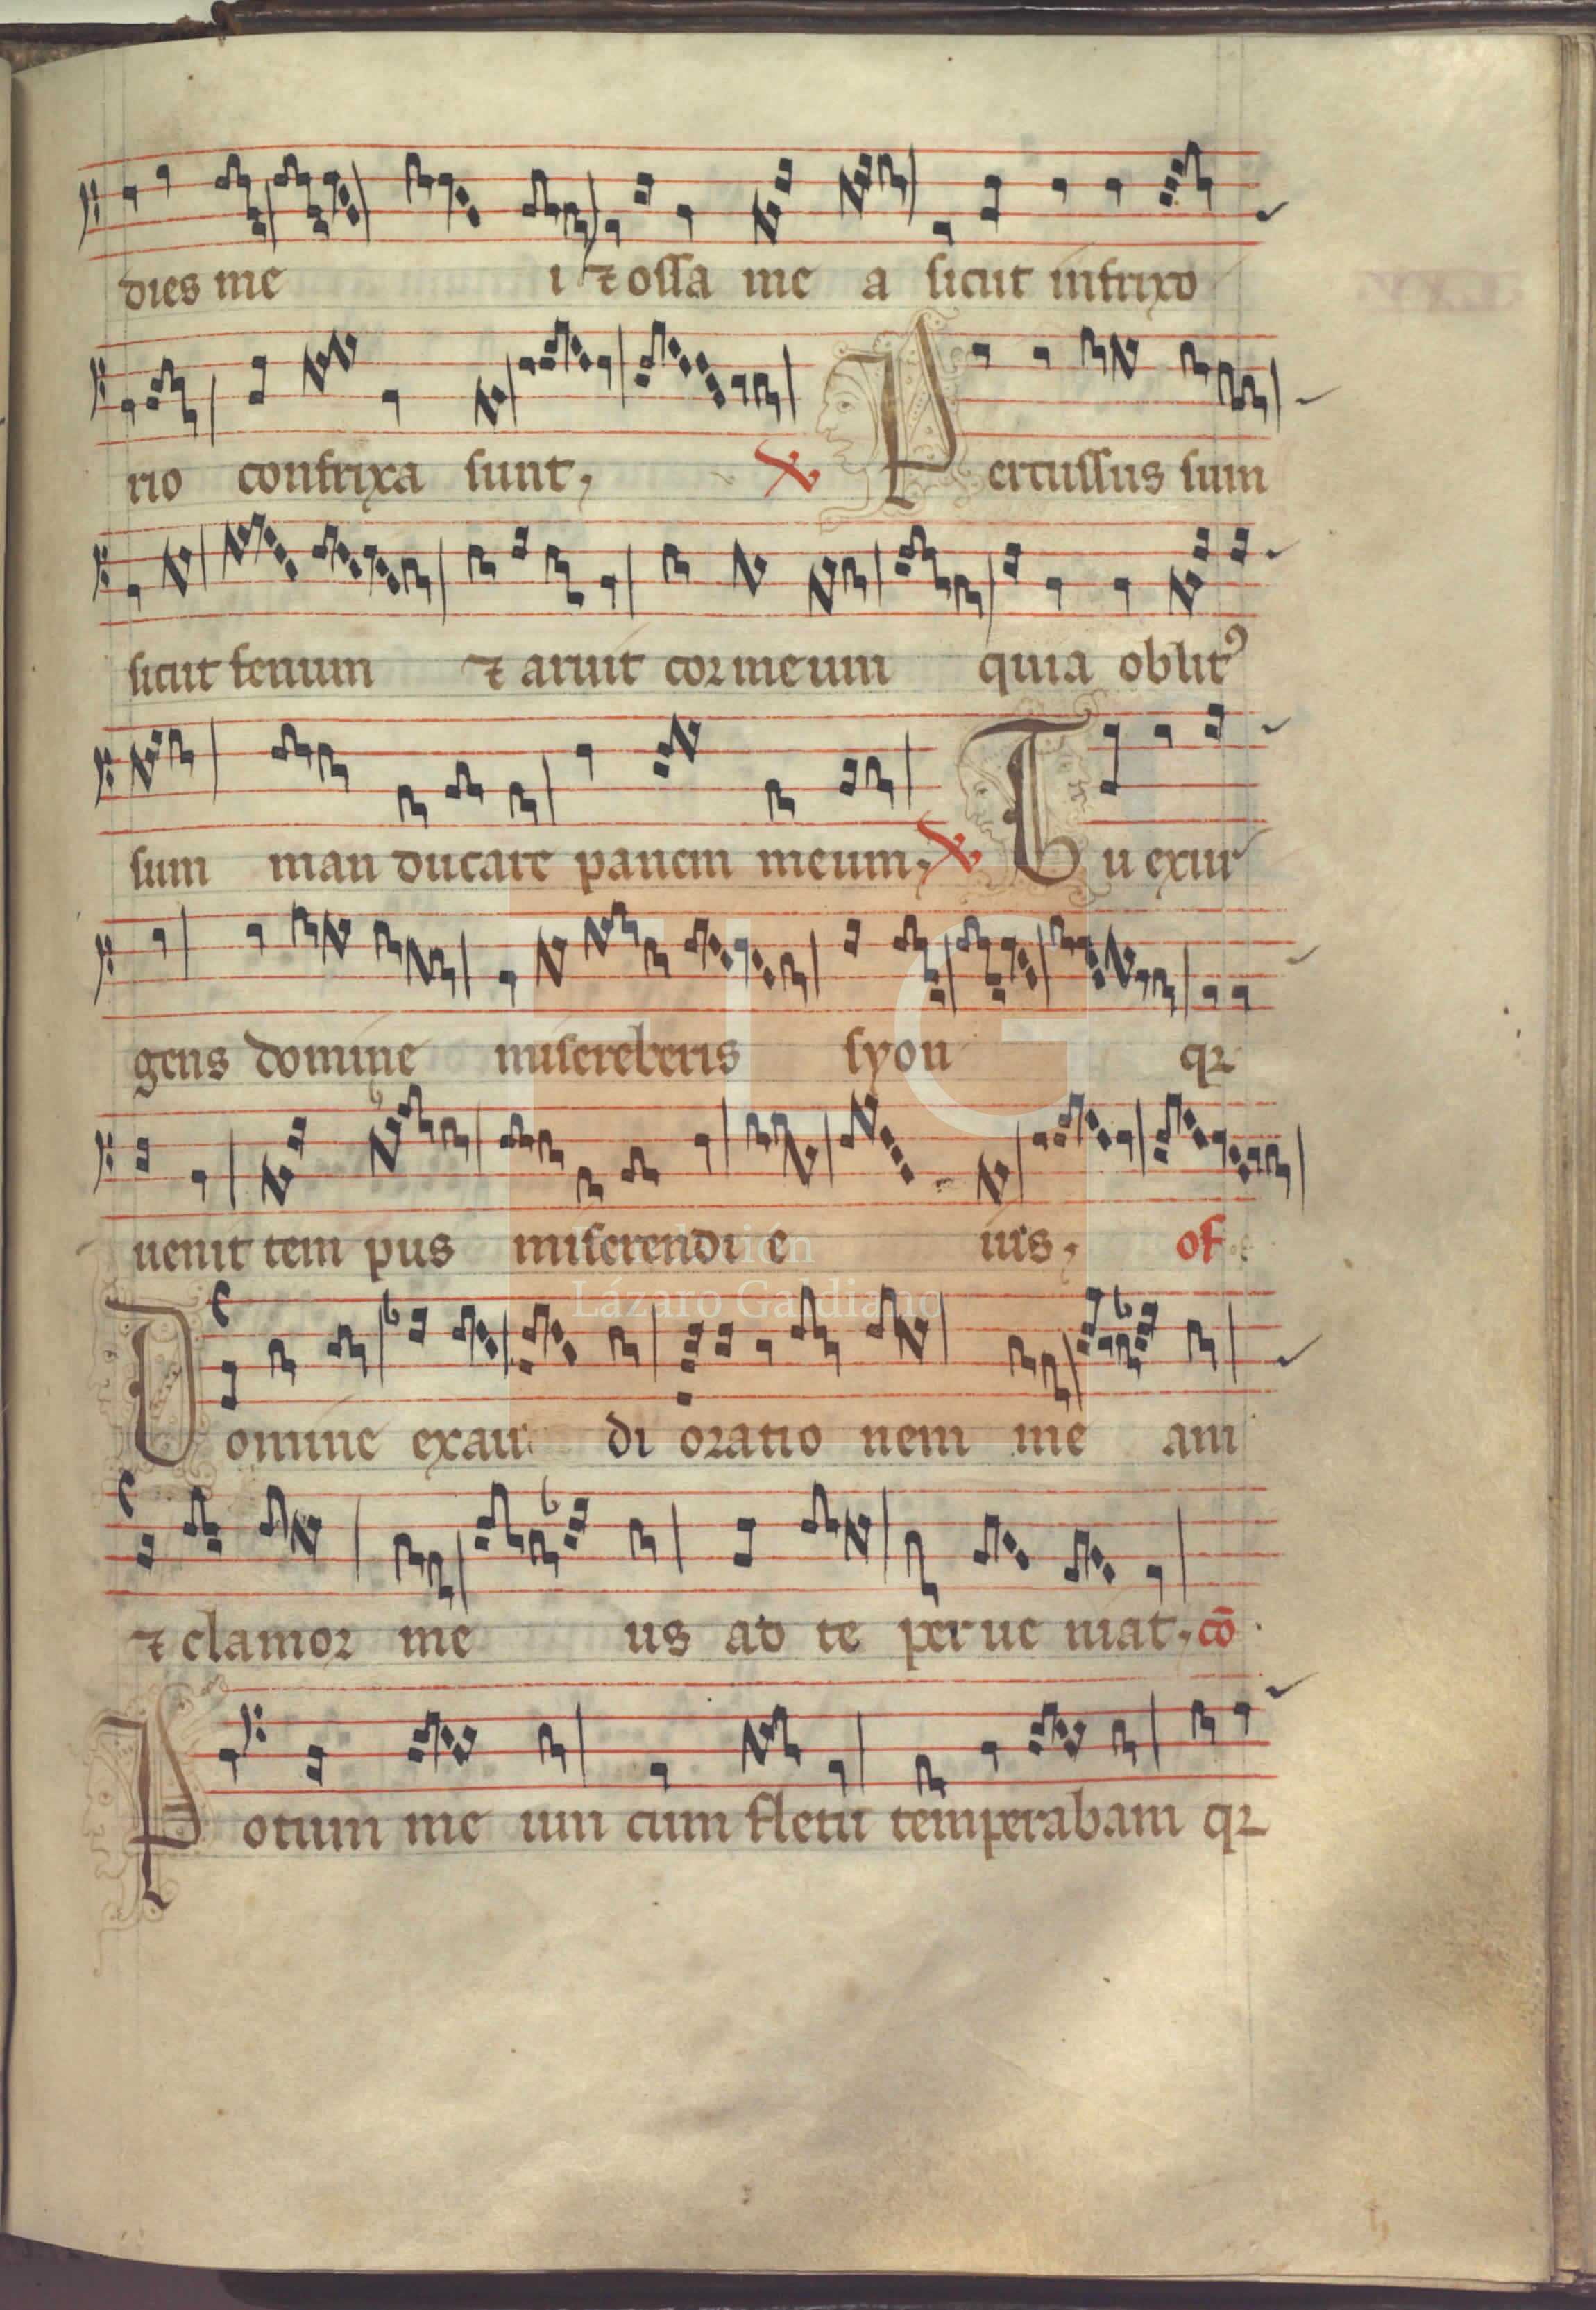 dies me i ⁊ ossa me a sicut infrixo
rio confrixa sunt, ℣ Percussus sum
sicut fenum ⁊ aruit cor meum quia oblitꝰ
sum man ducare panem meum, ℣ Tu exur
gens domine misereberis syon qꝛ
uenit tem pus miserendi e ius, of
Domine exau di oratio nem me am
⁊ clamor me us ad te perue niat, cō
Potum me um cum fletu temperabam qꝛ
FLG
Fundación
Lázaro Galdiano